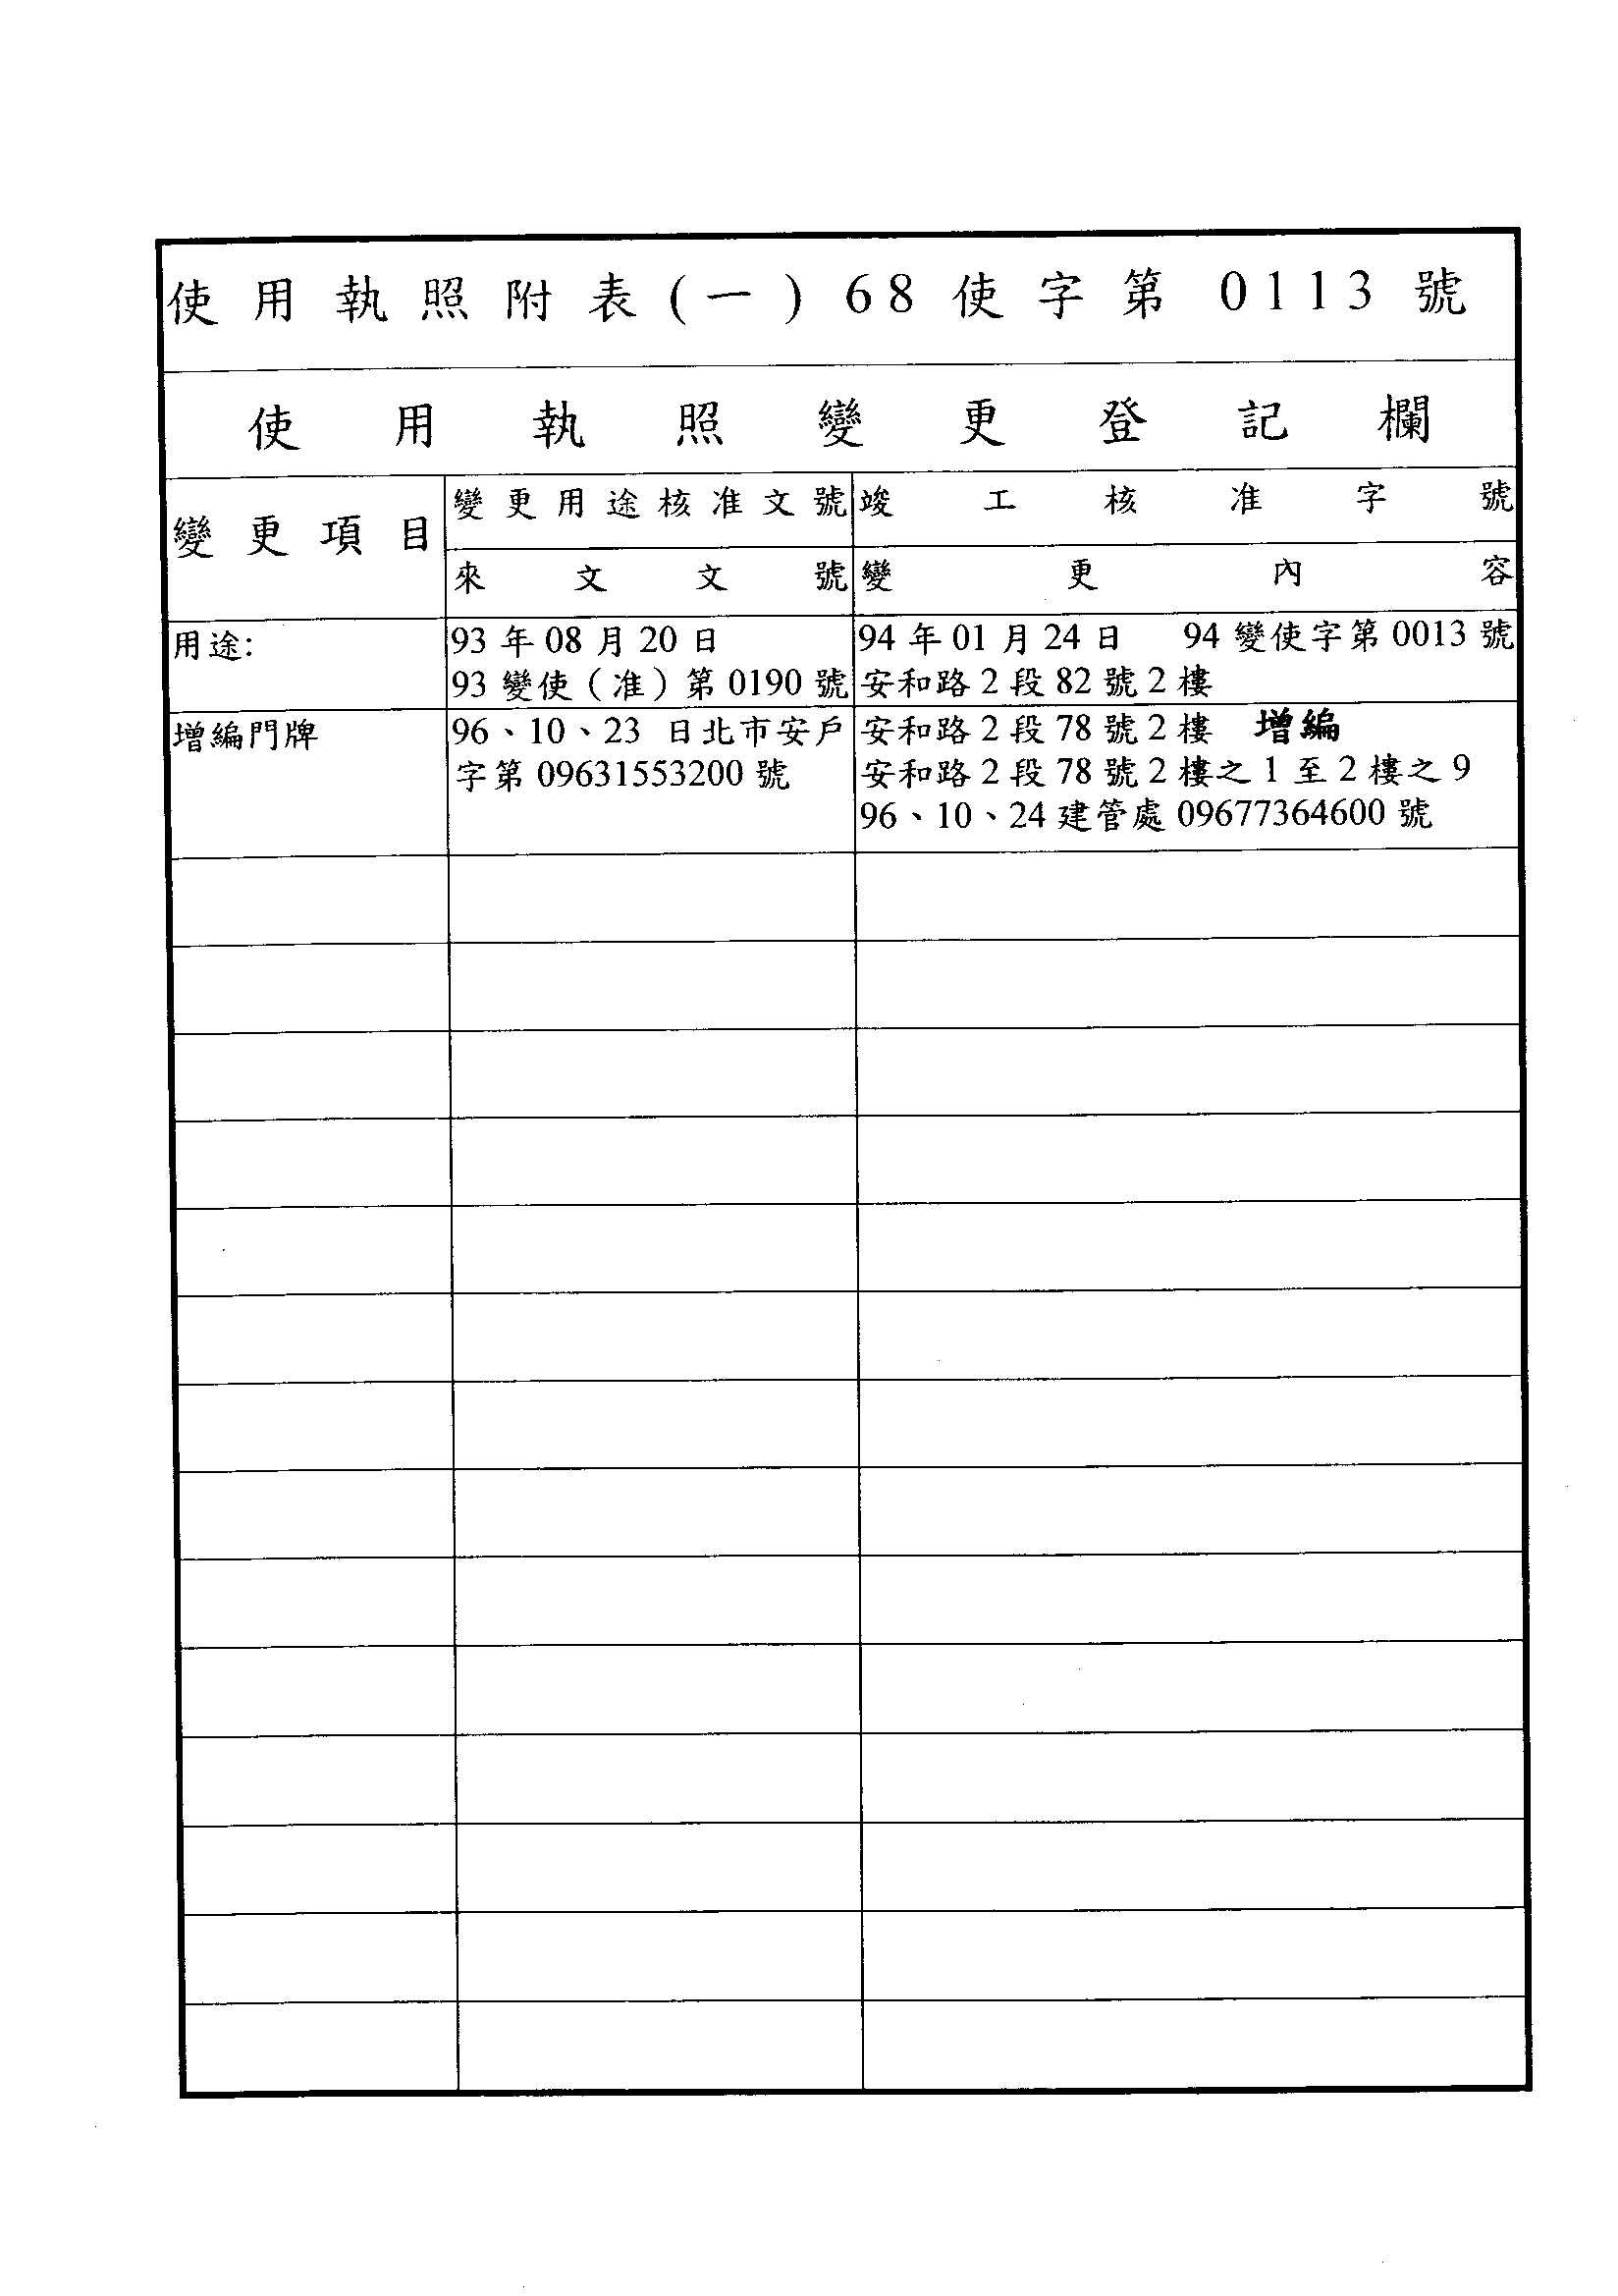 使用執照附表(一)68使字第0113號
使用執照變更登記欄
變更項目
變更用途核准文號
竣工核准字號
來文文號
變更內容
用途:
93年08月20日
94年01月24日 94變使字第0013號
93變使（准）第0190號
安和路2段82號2樓
增編門牌
96、10、23 日北市安戶
安和路2段78號2樓 增編
字第09631553200號
安和路2段78號2樓之1至2樓之9
96、10、24建管處09677364600號